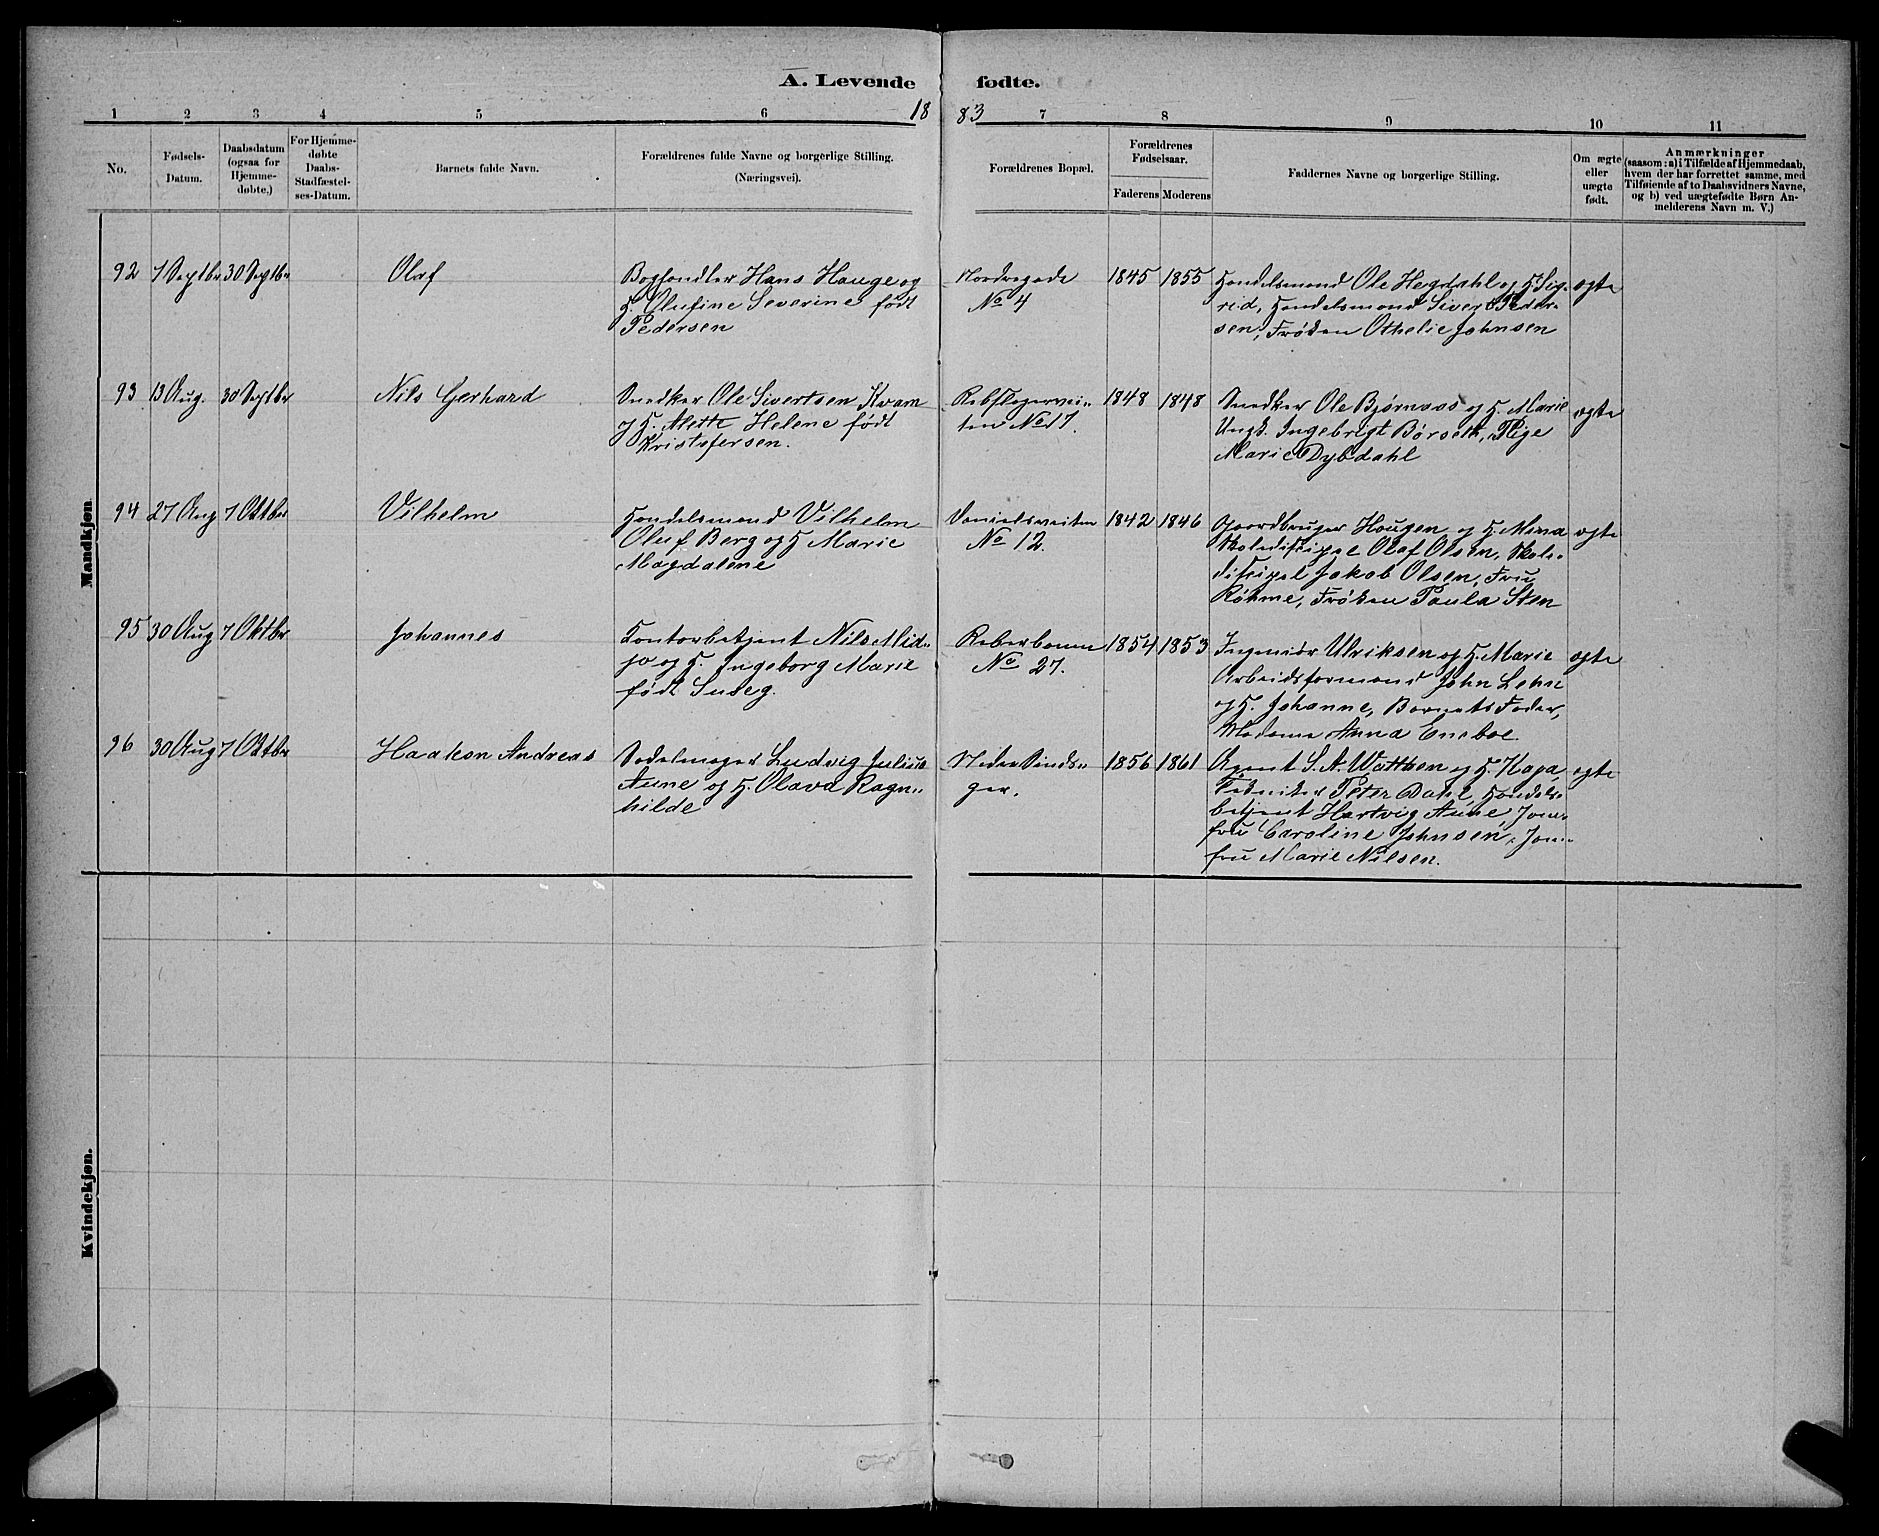 A. Levende fødte.
1 2 3 4 5 6 18 83 7 8 9 10 11
No.
Fødsels-
Datum.
Daabsdatum
(ogsaa for
Hjemme-
døbte.)
For Hjemme-
døbte
Daabs-
Stadfæstel-
ses-Datum.
Barnets fulde Navn.
Forældrenes fulde Navne og borgerlige Stilling.
(Næringsvei).
Forældrenes Bopæl.
Forældrenes
Fødselsaar.
Faderens Moderens
Faddernes Navne og borgerlige Stilling.
Om ægte
eller
uægte
født.
Anmærkninger
(saasom: a) i Tilfælde af Hjemmedaab,
hvem der har forrettet samme, med
Tilføiende af to Daabsvidners Navne,
og b) ved uægtefødte Børn An-
melderens Navn m. V.)
Mandkjøn
92
7 Septbr
30 Septbr
Olaf
Boghandler Hans Hauge og
H. Olufine Severine født
Pedersen
Nordregade
No 4
1845
1855
Handelsmand Ole Hegdahl og H Sig-
rid, Handelsmand Sivert Peder-
sen, Frøken Othelie Johnsen
ægte
93
13 Aug.
30 Septbr
Nils Gerhard
Snedker Ole Sivertsen Kvam
og H. Mette Helene født
Kristofersen.
Rebslagervei-
ten No 17.
1848
1848
Snedker Ole Bjørnaas og H. Marie
Ungk. Ingebrigt Børseth, Pige
Marie Dybdahl
ægte
94
27 Aug
7 Oktbr
Vilhelm
Handelsmand Vilhelm
Oluf Berg og H Marie
Magdalene
Danielsveiten
No 12.
1842
1846
Gaardbruger Haugen og H. Mina
Skoledisipel Olaf Olsen, Skole-
disipel Jakob Olsen, Fru
Røhme, Frøken Paula Sten
ægte
95
30 Aug
7 Oktbr
Johannes
Kontorbetjent Nils Mid-
jo og H. Ingeborg Marie
født Sneeg.
Reberbanen
No 27.
1854
1853
Ingeniør Ulriksen og H. Marie
Arbeidsformand John Lehn
og H. Johanne, Barnets Fader,
Madame Anna Eneboe
ægte
96
30 Aug
7 Oktbr
Haakon Andreas
Sadelmager Ludvig Julius
Aune og H. Olava Ragn-
hilde
Nedre Sinds-
ger.
1856
1861
Agent S. A. Watthen og H. Kapa,
Tekniker Peter Dahl, Handels-
betjent Hartvig Aune, Jom-
fru Caroline Johnsen, Jom-
fru Marie Nilsen.
ægte
Kvindekjøn.